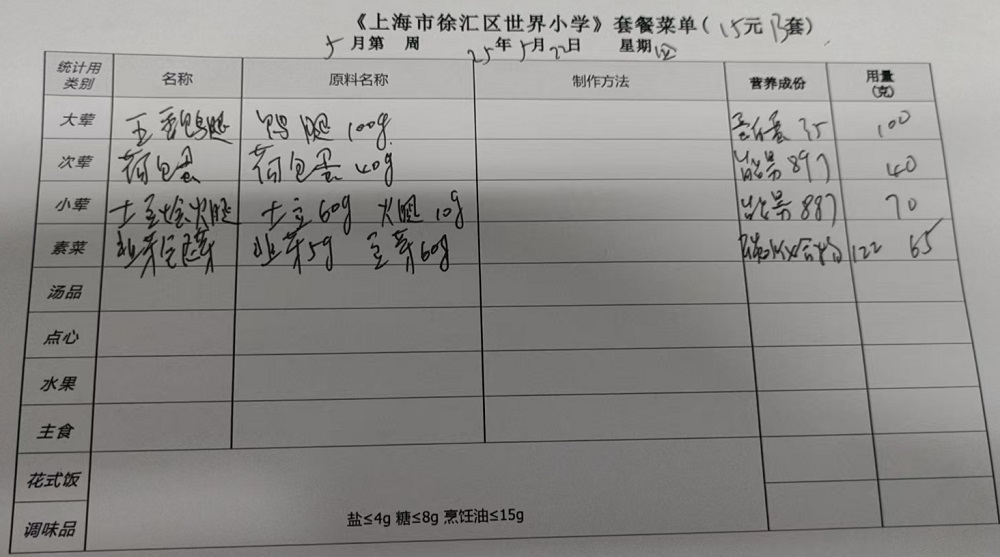 《上海市徐汇区世界小学》套餐菜单(15元B套)
5月第 周 25年5月22日 星期四
统计用类别 名称 原料名称 制作方法 营养成份 用量(克)
大荤 五香鸭腿 鸭腿 100g 蛋白质 35 100
次荤 荷包蛋 荷包蛋 40g 能量 897 40
小荤 土豆烩火腿 土豆 60g 火腿 10g 能量 887 70
素菜 韭芽绿豆芽 韭芽5g 豆芽60g 碳水化合物 122 65
汤品
点心
水果
主食
花式饭
调味品 盐≤4g 糖≤8g 烹饪油≤15g